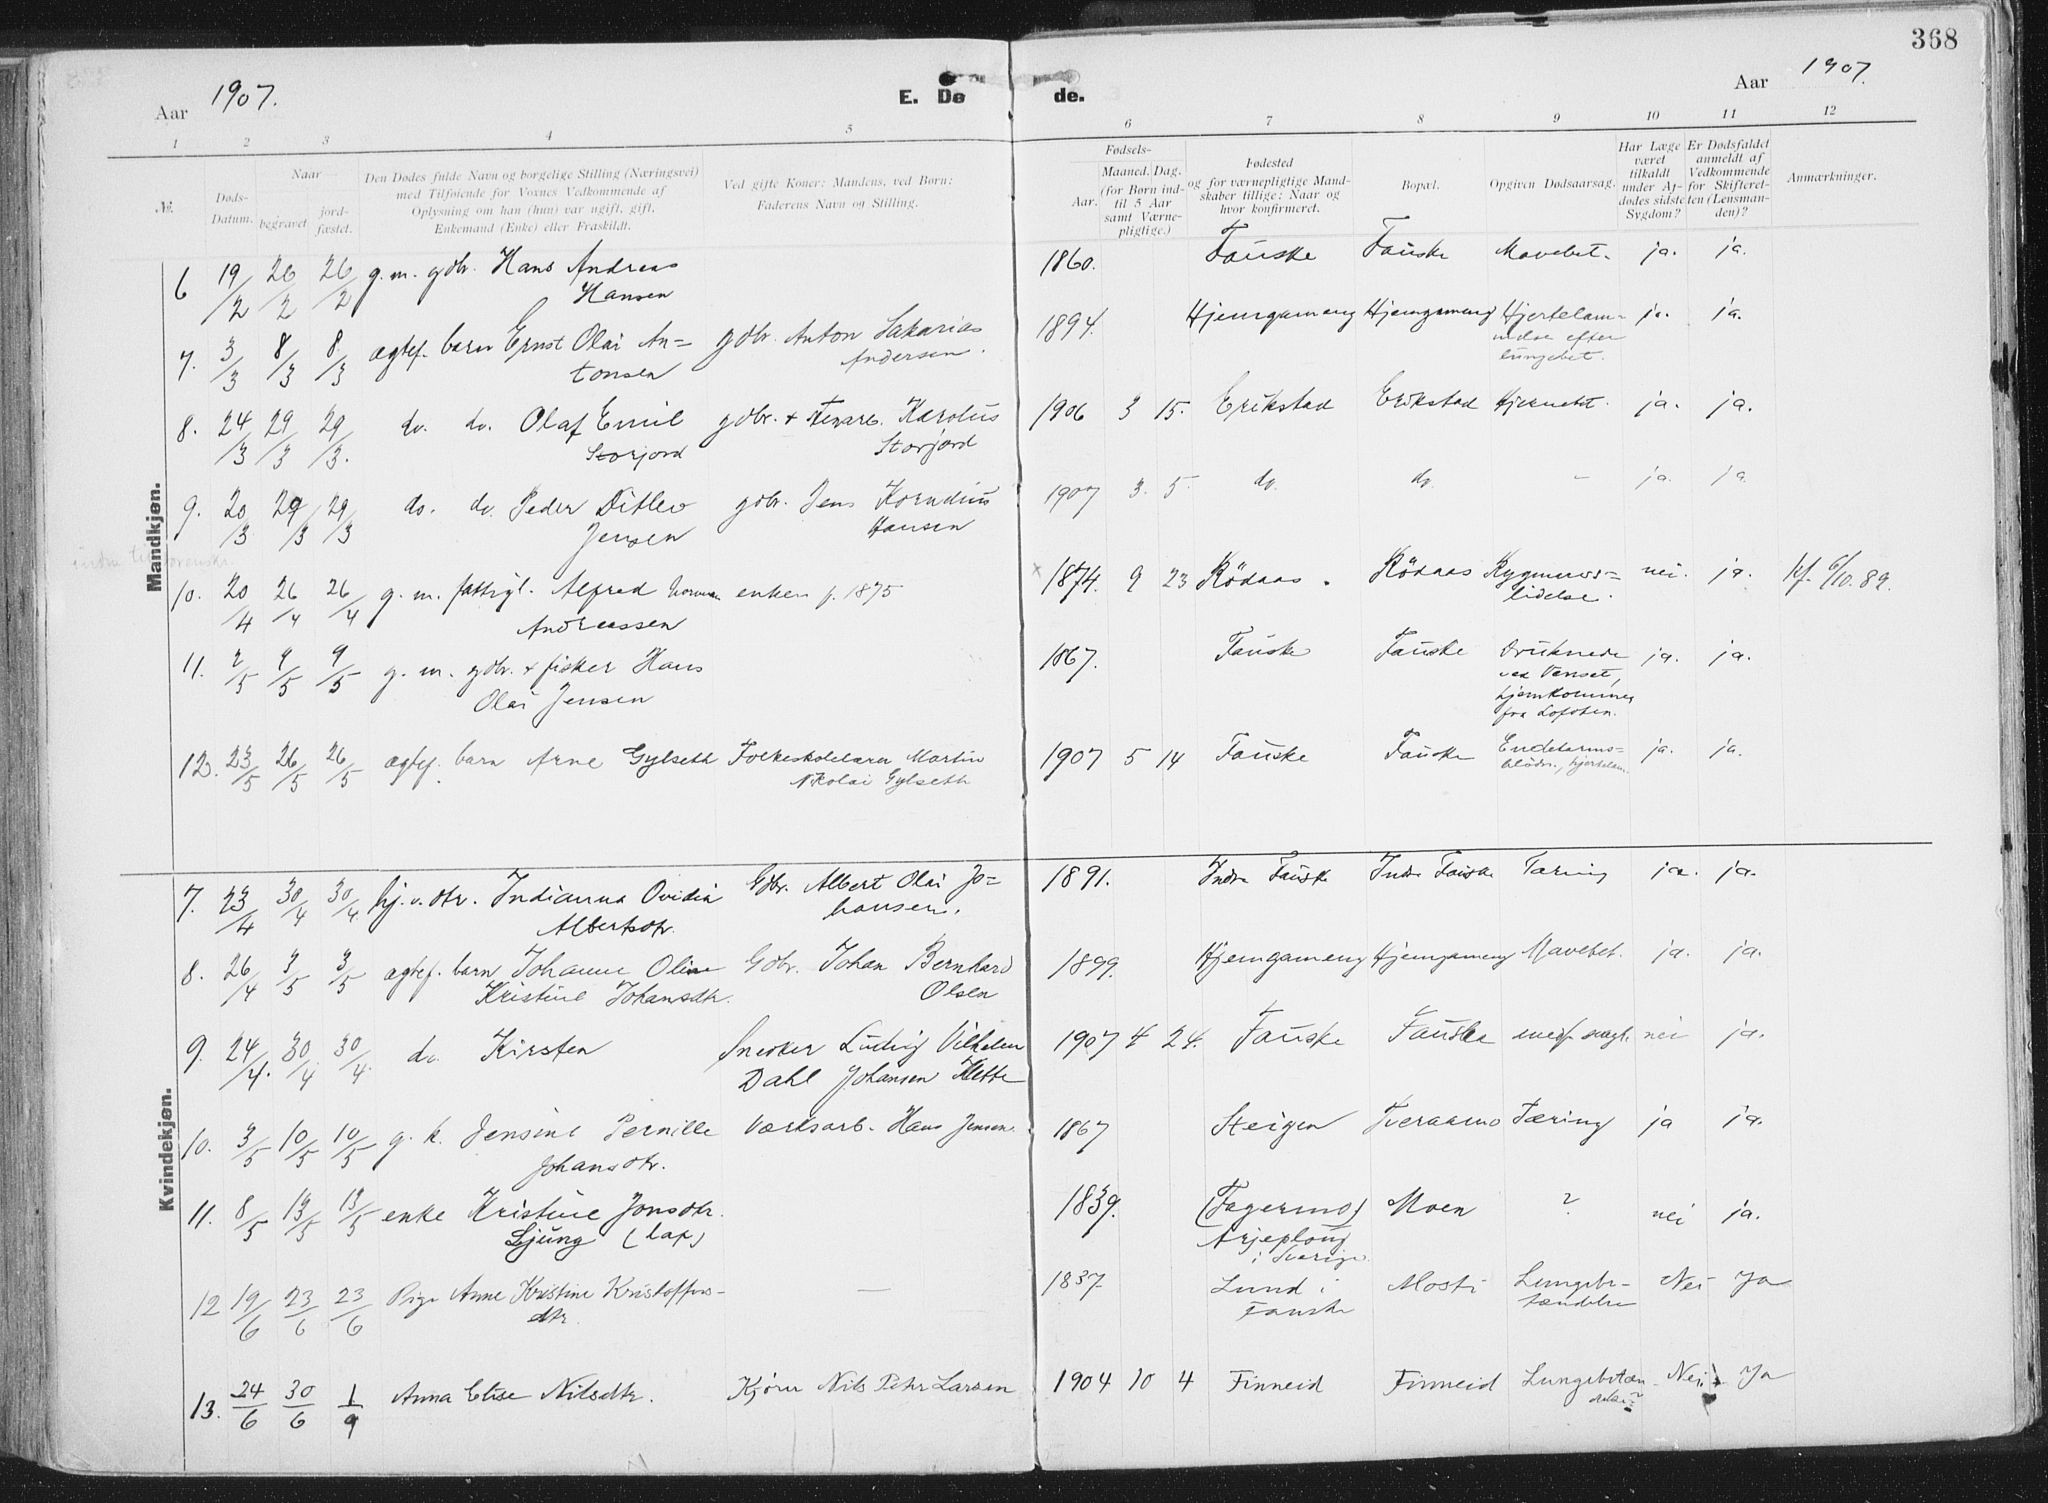 368
Aar 1907.
E. Dø de.
Aar 1907.
1 2 3 4 5 6 7 8 9 10 11 12
№.
Døds-Datum.
Naar
begravet
jord-fæstet.
Den Dødes fulde Navn og borgelige Stilling (Næringsvei)
med Tilføiende for Voxnes Vedkommende af
Oplysning om han (hun) var ugift, gift,
Enkemand (Enke) eller Fraskildt.
Ved gifte Koner: Mandens, ved Børn:
Faderens Navn og Stilling.
Fødsels-
Aar.
Maaned. Dag.
(for Børn ind-
til 5 Aar
samt Værne-
pligtige.)
Fødested
og for værnepligtige Mand-
skaber tillige: Naar og
hvor konfirmeret.
Bopæl.
Opgiven Dødsaarsag.
Har Læge
været
tilkaldt
under Af-
dødes sidste
Sygdom?
Er Dødsfaldet
anmeldt af
Vedkommende
for Skifteret-
ten (Lensman-
den)?
Anmærkninger.
Mandkjøn.
6 19/2 26/2 26/2 g. m. gdbr. Hans Andreas 1860. Fauske Fauske Mavebet. ja. ja.
Hansen
7. 3/3 8/3 8/3 ægtef. barn Ernst Olai An- gdbr. Anton Sakarias 1894. Hjemgameng Hjemgameng Hjertelam- ja. ja.
tonsen Andersen. melse efter
lungebet.
8. 24/3 29/3 29/3. do. do. Olaf Emil gdbr. + Karolus 1906 3 15. Erikstad Erikstad Hjernebet. ja. ja.
Storjord Storjord
9. 20/3 29/3 29/3 do. do. Peder Ditlev gdbr. Jens Kornelius 1907 3. 5. do. do. — ja. ja
Jensen Hansen
10. 20/4 26/4 26/4 g. m. fattigl. Alfred enken f. 1875 × 1874. 9 23 Rödaas. Rödaas Rygmarvs- nei. ja. kf. 6/10. 89.
Andreassen lidelse.
11. 2/5 9/5 9/5 g. m. gdbr. + fisker Hans 1867. Fauske Fauske Druknede ja. ja.
Olai Jensen ved Venset,
hjemkommer
fra Lofoten.
12. 23/5 26/5 26/5 ægtef. barn Arne Gylseth Folkeskolelærer Martin 1907 5 14 Fauske Fauske Endetarms- ja. ja.
Nikolai Gylseth blödn., hjertelam.
Kvindekjøn.
7. 23/4 30/4 30/4 hj. v. dtr. Indianna Ovidia Gdbr. Albert Olai Jo- 1891. Indre Fauske Indre Fauske Tæring ja. ja.
Albertsdtr. hansen.
8. 26/4 3/5 3/5 ægtef. barn Johanne Oline Gdbr. Johan Bernhard 1899. Hjemgameng Hjemgameng Mavebet. ja. ja.
Kristine Johansdtr. Olsen
9. 24/4. 30/4 30/4. do Kirsten Snedker Ludvig Vilhelm 1907 4 24. Fauske Fauske medf. svagh. nei ja.
Dahl Johansen Klette
10. 3/5 10/5 10/5 g. k. Jensine Pernille Værksarb. Hans Jensen. 1867 Steigen Tveraamo Tæring ja ja.
Johansdtr.
11. 8/5 13/5 13/5 enke Kristine Jonsdtr. 1839. (Fagermo) Moen ? nei ja.
Ljung (lap) Arjeploug
i Sverige.
12 19/6 23/6 23/6 Pige Anne Kristine Kristoffers- — 1837 Lund i Mosti Lungebe- Nei Ja
dtr. Fauske tændelse
13. 24/6 30/6 1/9 Anna Elise Nilsdtr. Kjörer Nils Petter Larsen 1904 10 4 Finneid Finneid Lungebetæn- Nei Ja
delse?